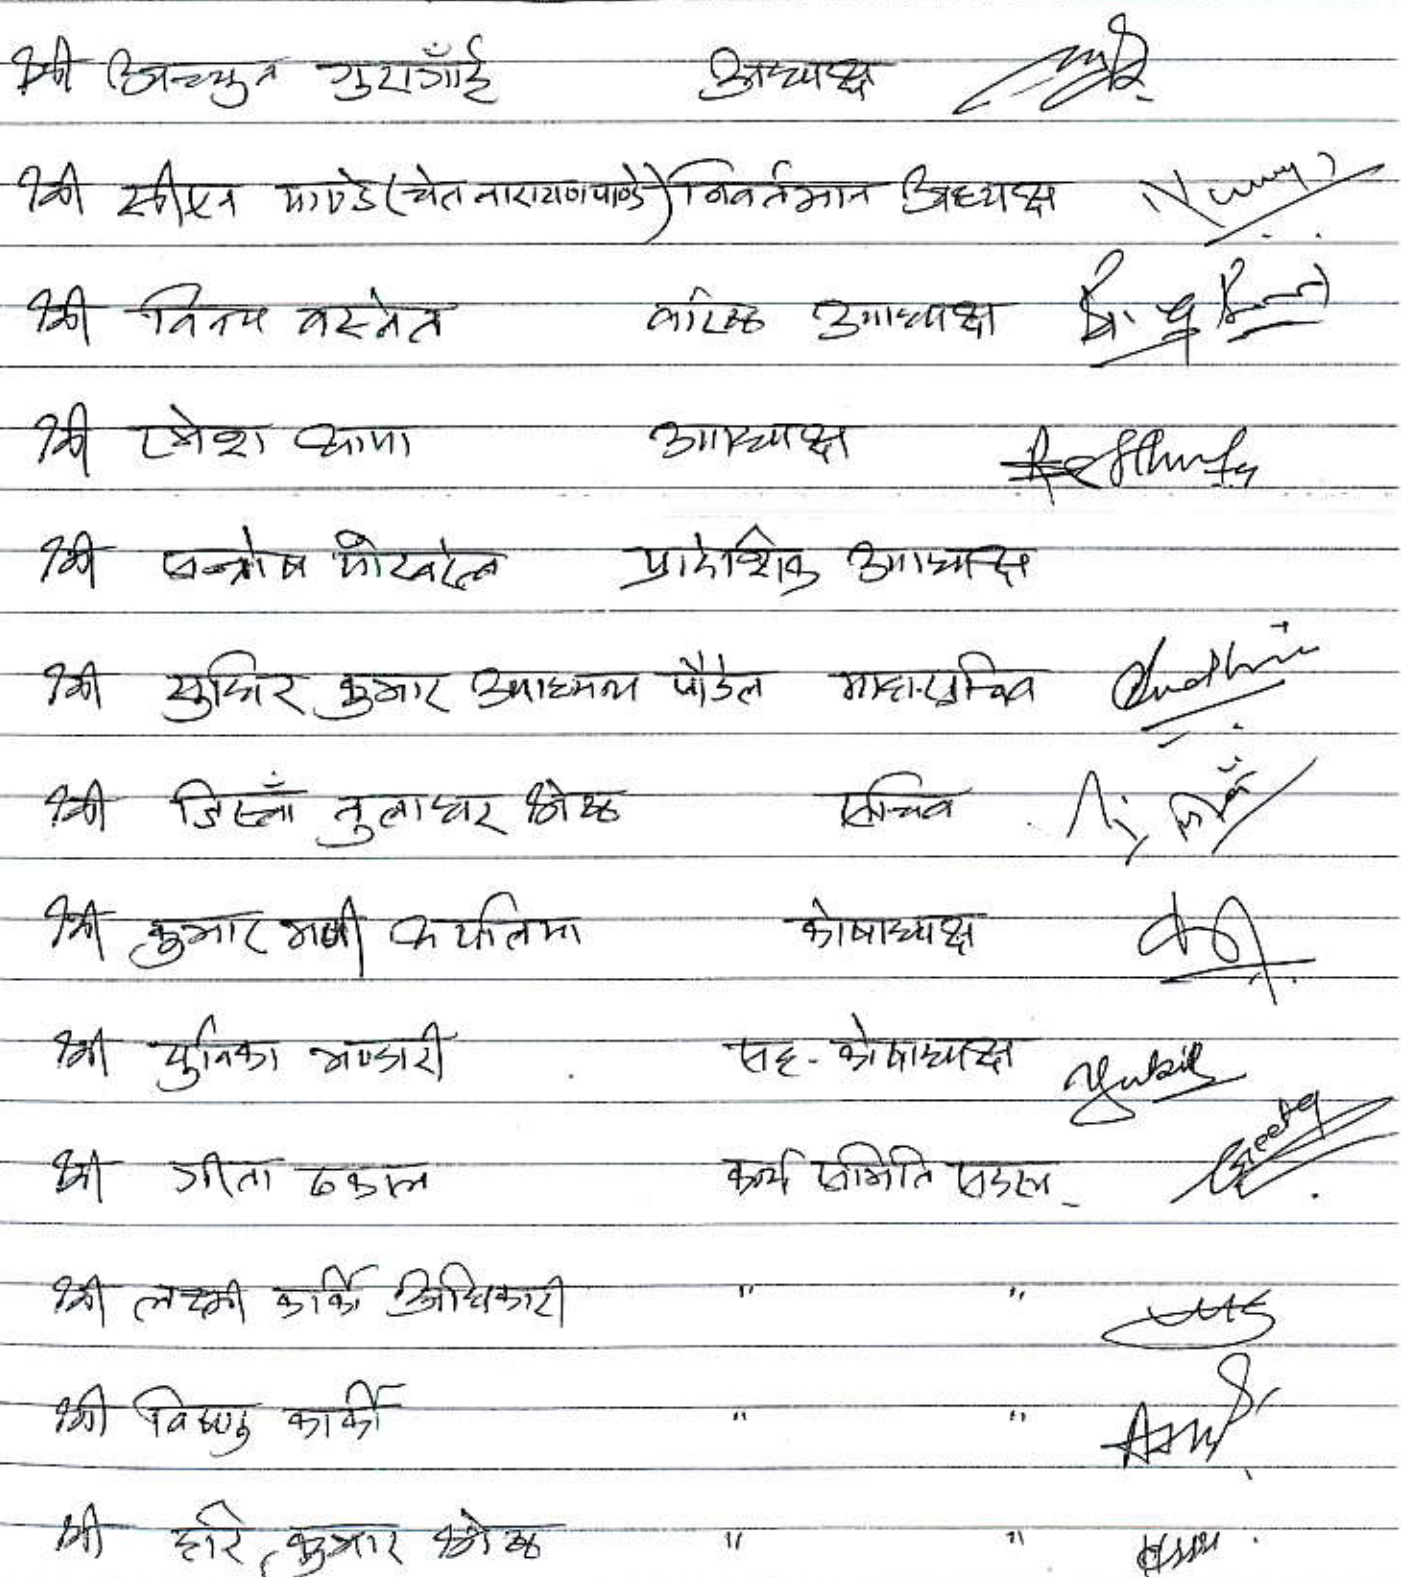 श्री अच्युत गुरागाँई अध्यक्ष
श्री सीएन पाण्डे (चेत नारायण पाण्डे) निवर्तमान अध्यक्ष
श्री विनय वस्नेत वरिष्ठ उपाध्यक्ष
श्री रमेश थापा उपाध्यक्ष
श्री सन्तोष पोखरेल प्रादेशिक उपाध्यक्ष
श्री सुधिर कुमार उपाध्याय पौडेल महासचिव Sudhir
श्री तुलाधर श्रेष्ठ सचिव
श्री कुमार मणी थपलिया कोषाध्यक्ष
श्री युविका भण्डारी सह-कोषाध्यक्ष
श्री गीता ढकाल कार्य समिति सदस्य Geeta
श्री लक्ष्मी कार्की अधिकारी " "
श्री विष्णु कार्की " "
श्री हरि कुमार श्रेष्ठ " "